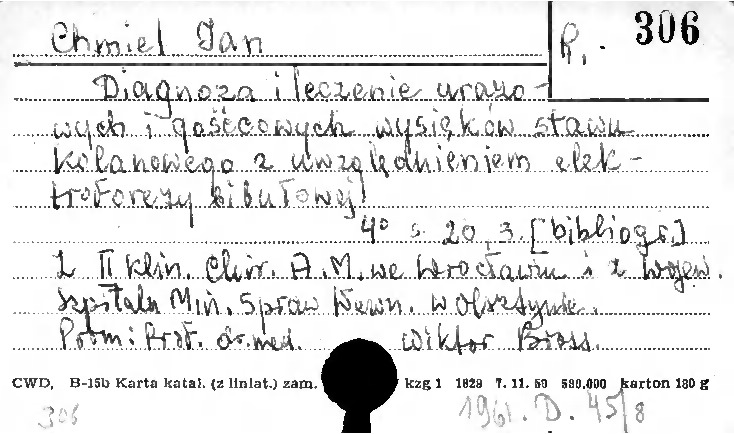 Chmiel Jan
R. . 306
Diagnoza i leczenie urazo-
wych i gośćcowych wysięków stawu
kolanowego z uwzględnieniem elek-
troforezy bibułowej
4° s. 20, 3. [bibliogr.]
Z II Klin. Chir. A.M. we Wrocławiu i z Wojew.
Szpitala Min. Spraw Wewn. w Olsztynie.
Prom: Prof. dr. med. Wiktor Bross.
CWD, B-15b Karta katal. (z liniat.) zam. kzg 1 1829 7. 11. 59 580.000 karton 180 g
306 1961. D. 45/8